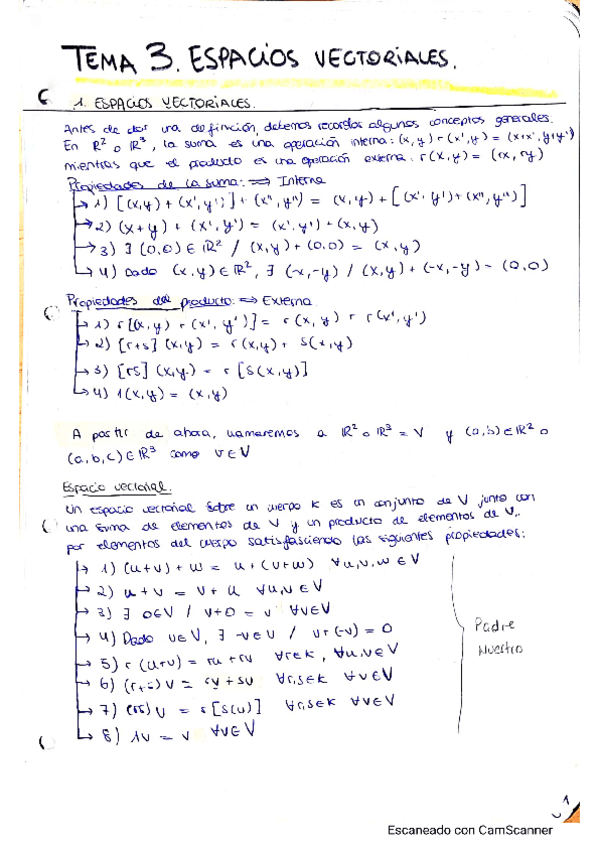 TEMA 3. ESPACIOS VECTORIALES.
1. ESPACIOS VECTORIALES.
Antes de dar una definción, debemos recordar algunos conceptos generales.
En ℝ² o ℝ³, la suma es una operación interna: (x,y) + (x',y') = (x+x', y+y')
mientras que el producto es una operación externa: r(x,y) = (rx, ry)
Propiedades de la suma: ⇒ Interna
→ 1) [(x,y) + (x',y')] + (x",y") = (x,y) + [(x',y') + (x",y")]
→ 2) (x+y) + (x',y') = (x',y') + (x,y)
→ 3) ∃ (0,0) ∈ ℝ² / (x,y) + (0,0) = (x,y)
→ 4) Dado (x,y) ∈ ℝ², ∃ (-x,-y) / (x,y) + (-x,-y) = (0,0)
Propiedades del producto: ⇒ Externa
→ 1) r[(x,y) + (x',y')] = r(x,y) + r(x',y')
→ 2) [r+s] (x,y) = r(x,y) + s(x,y)
→ 3) [rs] (x,y) = r[s(x,y)]
→ 4) 1(x,y) = (x,y)
A partir de ahora, llamaremos a ℝ² o ℝ³ = V y (a,b) ∈ ℝ² o
(a,b,c) ∈ ℝ³ como v ∈ V
Espacio vectorial.
Un espacio vectorial sobre un cuerpo K es un conjunto de V junto con
una suma de elementos de V y un producto de elementos de V,
por elementos del cuerpo satisfasciendo las siguientes propiedades:
→ 1) (u+v) + w = u + (v+w) ∀u,v,w ∈ V
→ 2) u + v = v + u ∀u,v ∈ V
→ 3) ∃ 0∈V / v+0 = v ∀v∈V
→ 4) Dado v∈V, ∃ -v∈V / v+(-v) = 0
→ 5) r(u+v) = ru + rv ∀r∈K, ∀u,v∈V
→ 6) (r+s)v = rv + sv ∀r,s∈K ∀v∈V
→ 7) (rs)v = r[s(v)] ∀r,s∈K ∀v∈V
→ 8) 1v = v ∀v∈V
Padre
Nuestro
1
Escaneado con CamScanner